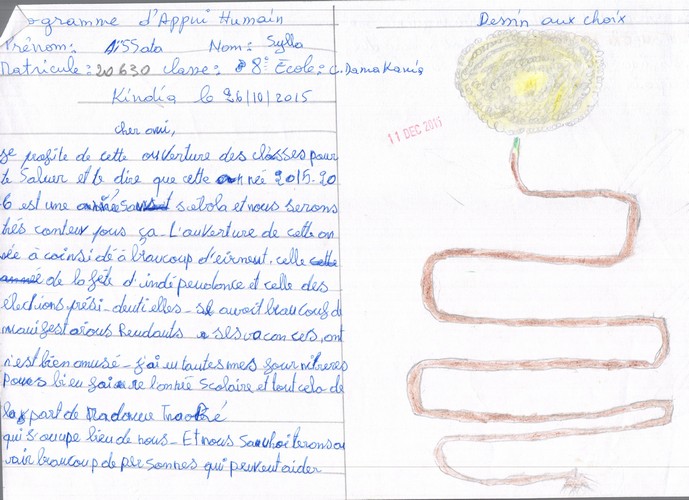 ogramme d'Appui Humain
Prénom: Aissata Nom: Sylla
Matricule: 20630 classe: 8e Ecole: C. Damakania
Kindia le 26/10/2015
cher ami,
Je profite de cette ouverture des classes pour
te Saluer et te dire que cette année 2015-20
6 est une sans et nous serons
très content pour ça - L'ouverture de cette an
née à coinsidé à beaucoup d'eirment, celle cette
année de la fête d'indépendance et celle des
élections prési-dentielles - beaucoup de
Pendants ses vacances, ont
n'est bien amusé - j'ai eu toutes mes fournitures
Pour bien faire l'année Scolaire et tout cela de
la part de Madame Traoré
qui s'occupe bien de nous - Et nous Souhoiterons a
voir beaucoup de personnes qui peuvent aider
Dessin aux choix
11 DEC 2015